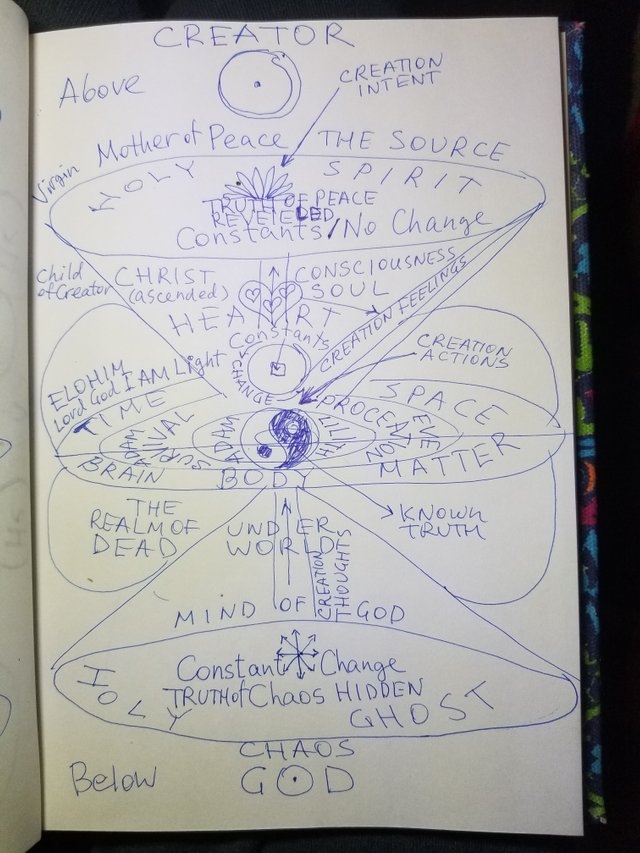 CREATOR
Above
CREATION
INTENT
Mother of Peace THE SOURCE
Virgin
HOLY SPIRIT
TRUTH OF PEACE
REVEIELDED
Constants/No Change
Child
of Creator
CHRIST
(ascended)
CONSCIOUSNESS
SOUL
HEART
CREATION FEELINGS
Constants
CHANGE
CREATION
ACTIONS
ELOHIM
Lord God I AM Light
TIME
SPACE
SURVIVAL
PROCEATION
ADAM
LILITH
ADAM
EVE
BRAIN
BODY
MATTER
THE
REALM OF
DEAD
UNDER
WORLD
KNOWN
TRUTH
CREATION
THOUGHTS
MIND OF GOD
Constant Change
TRUTH of Chaos HIDDEN
HOLY GHOST
CHAOS
GOD
Below